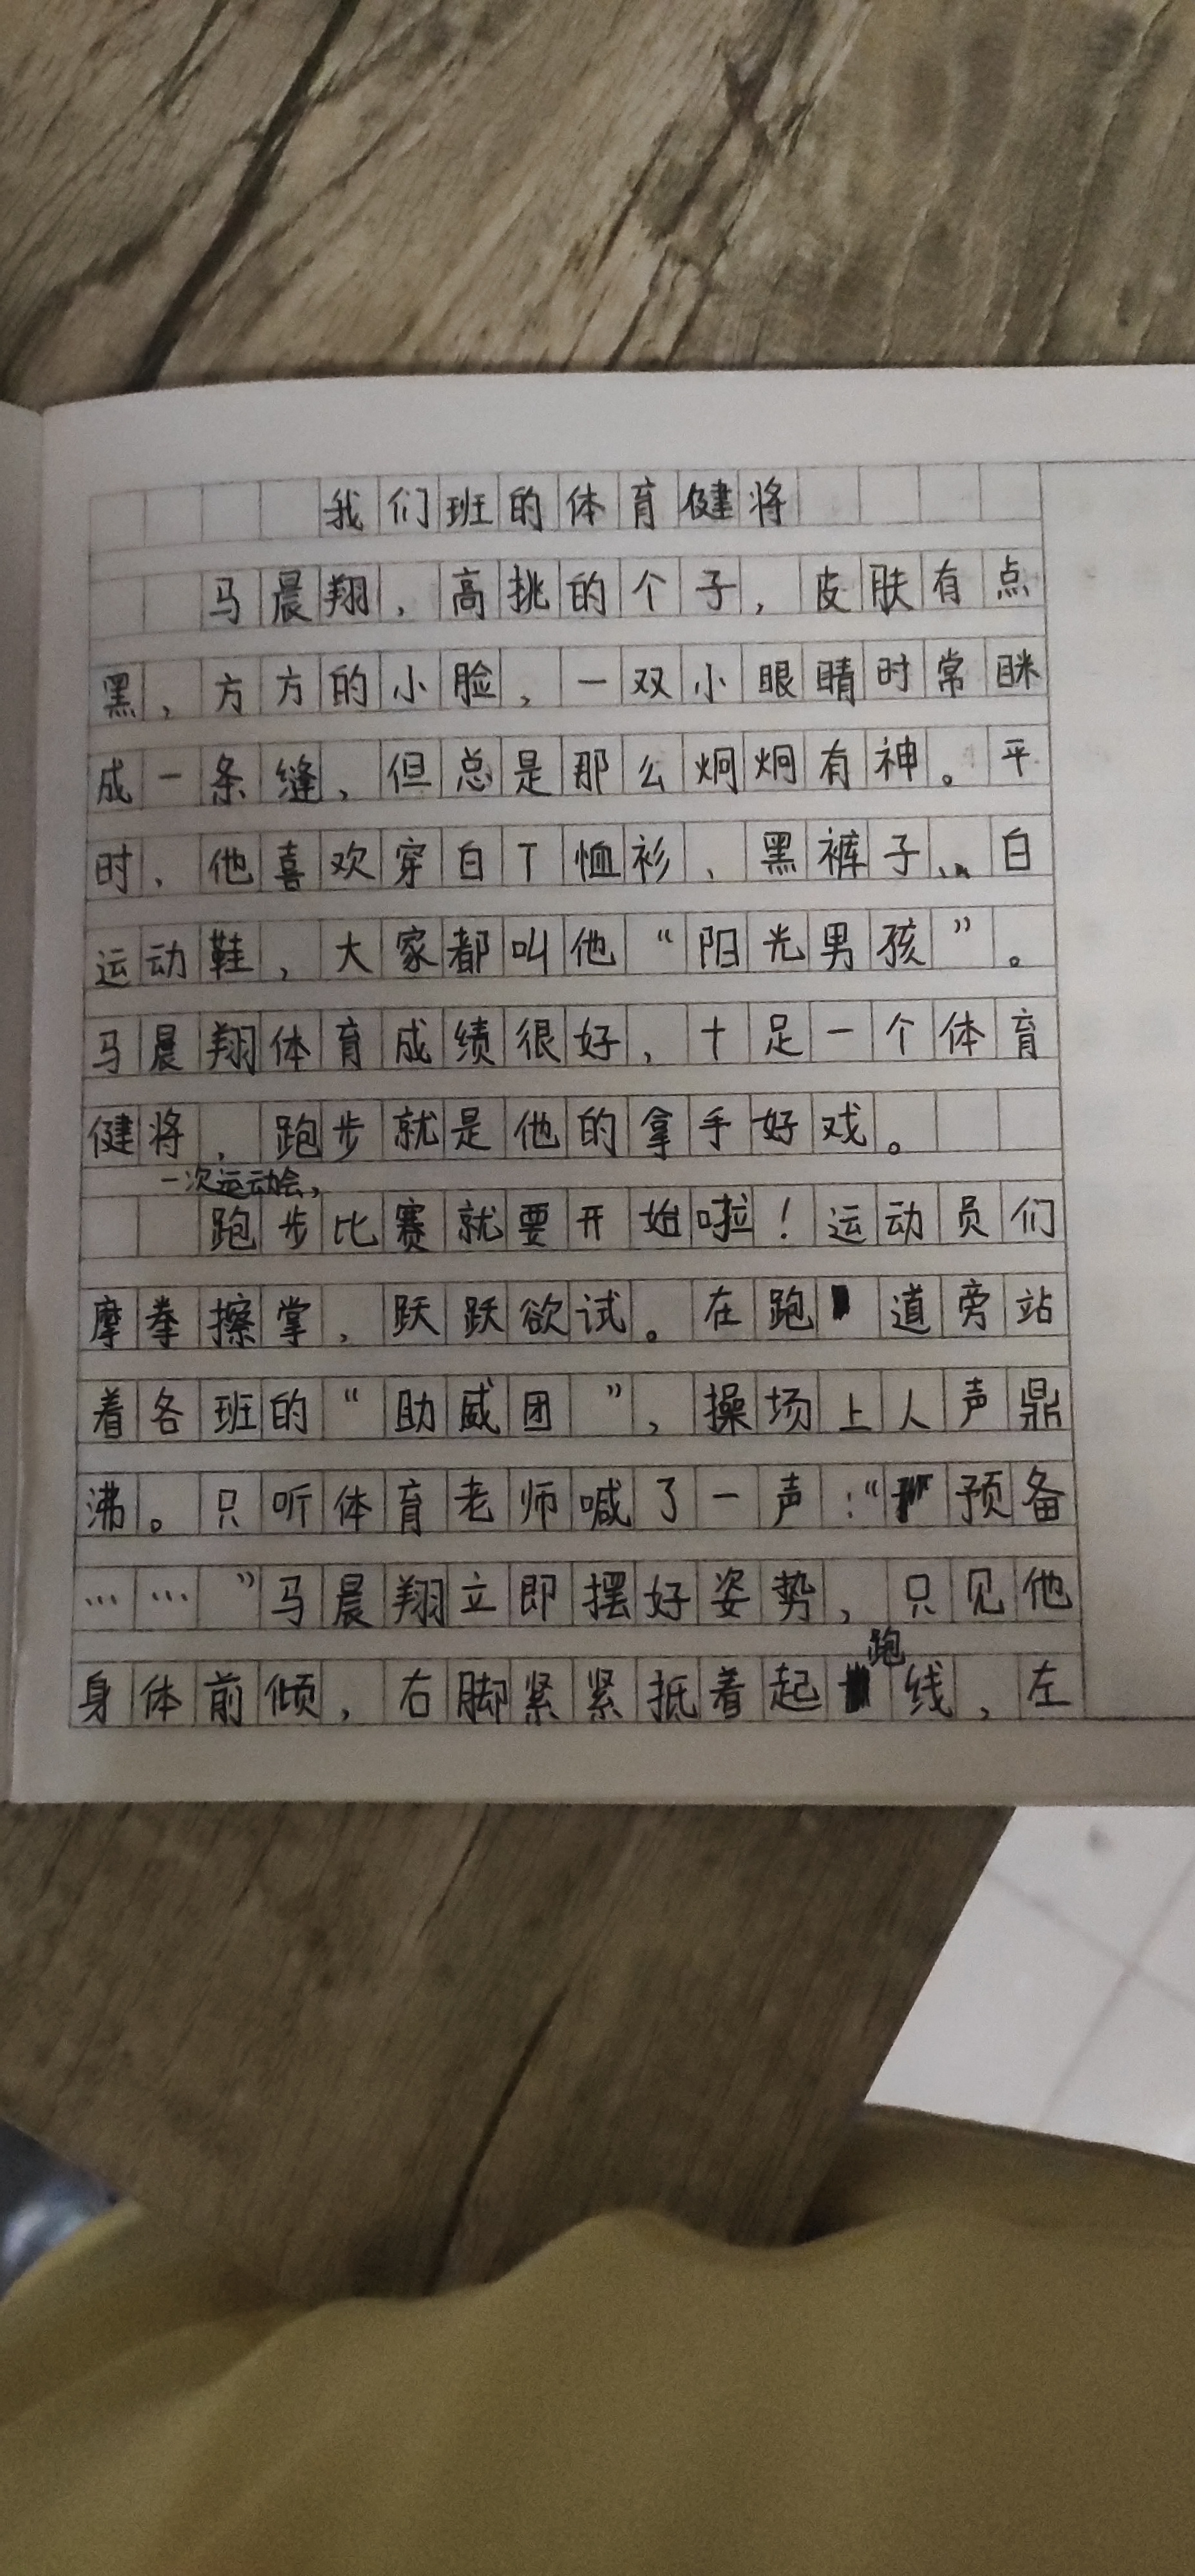 我们班的体育健将
马晨翔，高挑的个子，皮肤有点
黑，方方的小脸，一双小眼睛时常眯
成一条缝，但总是那么炯炯有神。平
时，他喜欢穿白T恤衫、黑裤子、白
运动鞋，大家都叫他“阳光男孩”。
马晨翔体育成绩很好，十足一个体育
健将，跑步就是他的拿手好戏。
一次运动会，
跑步比赛就要开始啦！运动员们
摩拳擦掌，跃跃欲试。在跑道旁站
着各班的“助威团”，操场上人声鼎
沸。只听体育老师喊了一声：“预备
……”马晨翔立即摆好姿势，只见他
身体前倾，右脚紧紧抵着起跑线，左